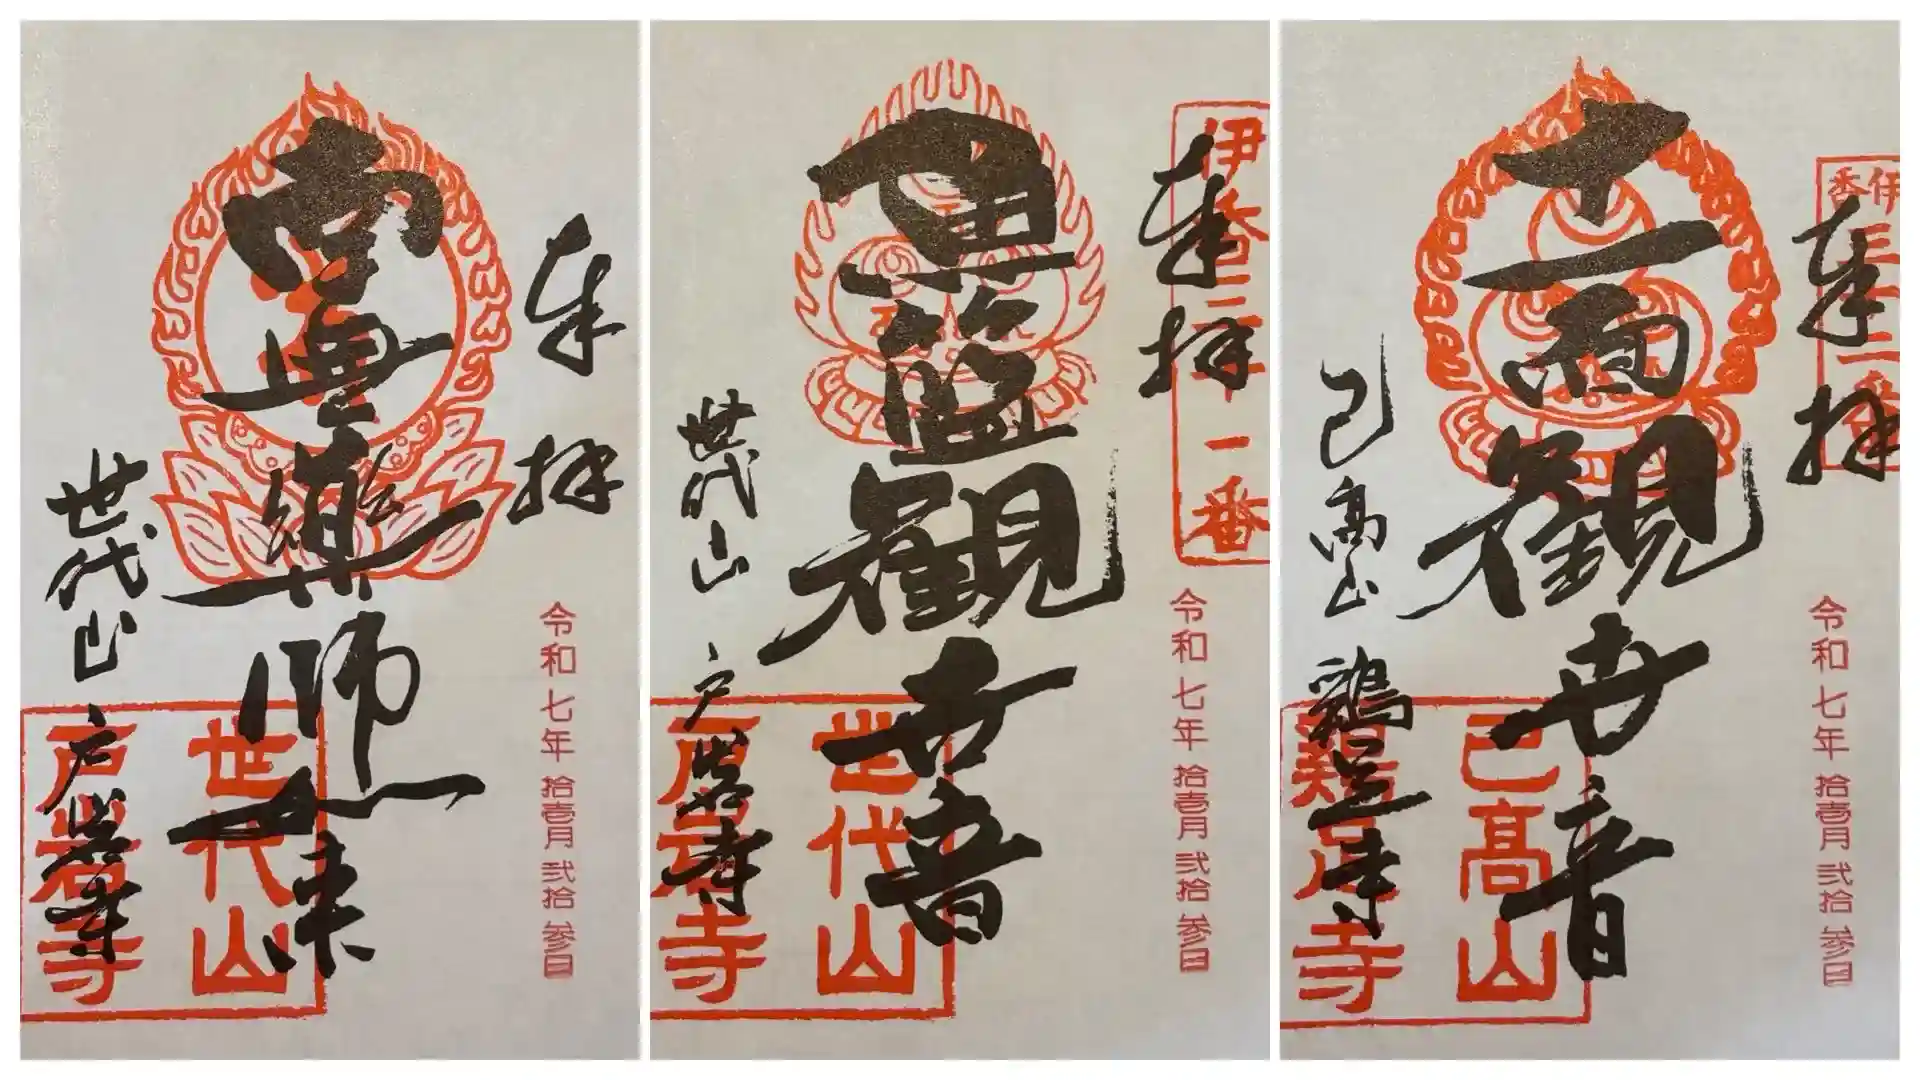 奉拝
令和七年拾壱月弐拾参日
薬師如来
世代山
戸岩寺
世代山
戸岩寺
奉拝
伊香三十一番
令和七年拾壱月弐拾参日
魚籃観世音
世代山
戸岩寺
世代山
戸岩寺
奉拝
伊香三十二番
令和七年拾壱月弐拾参日
十一面観世音
己高山
鶏足寺
己高山
鶏足寺